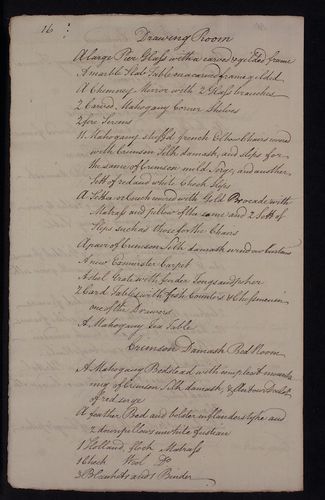 16
Drawing Room
A Large Pier Glass with a carved & gilded frame
A marble Slab Table on a carved frame gilded
A Chimney Mirror with 2 Glass branches
2 Carved Mahogany Corner Shelves
2 fire Screens
11 Mahogany stuff'd french Elbow Chairs covered
with Crimson Silk damask, and slips for
the same of Crimson Serge, and another
Sett of red and white Check slips
A Settea or Couch with Gold Brocade with
Matrass and pillows of the same and 2 Setts of
Slips such as those for the Chairs
A pair of Crimson Silk damask window Curtains
A new Exminster Carpit
A steel Grate with fender Tongs and poker
2 Card Tables with fish Counters & Chessmen in
one of the Drawers
A Mahogany Tea Table
Crimson Damask Bed Room
A Mahogany Bedstead with compleat
of Crimson Silk damask, &
of red serge
A feather Bed and bolster in flanders tyke and
2 down pillows in white fustian
1 Holland flock Matrass
1 Check Wool Do
3 Blankits and 1 Binder